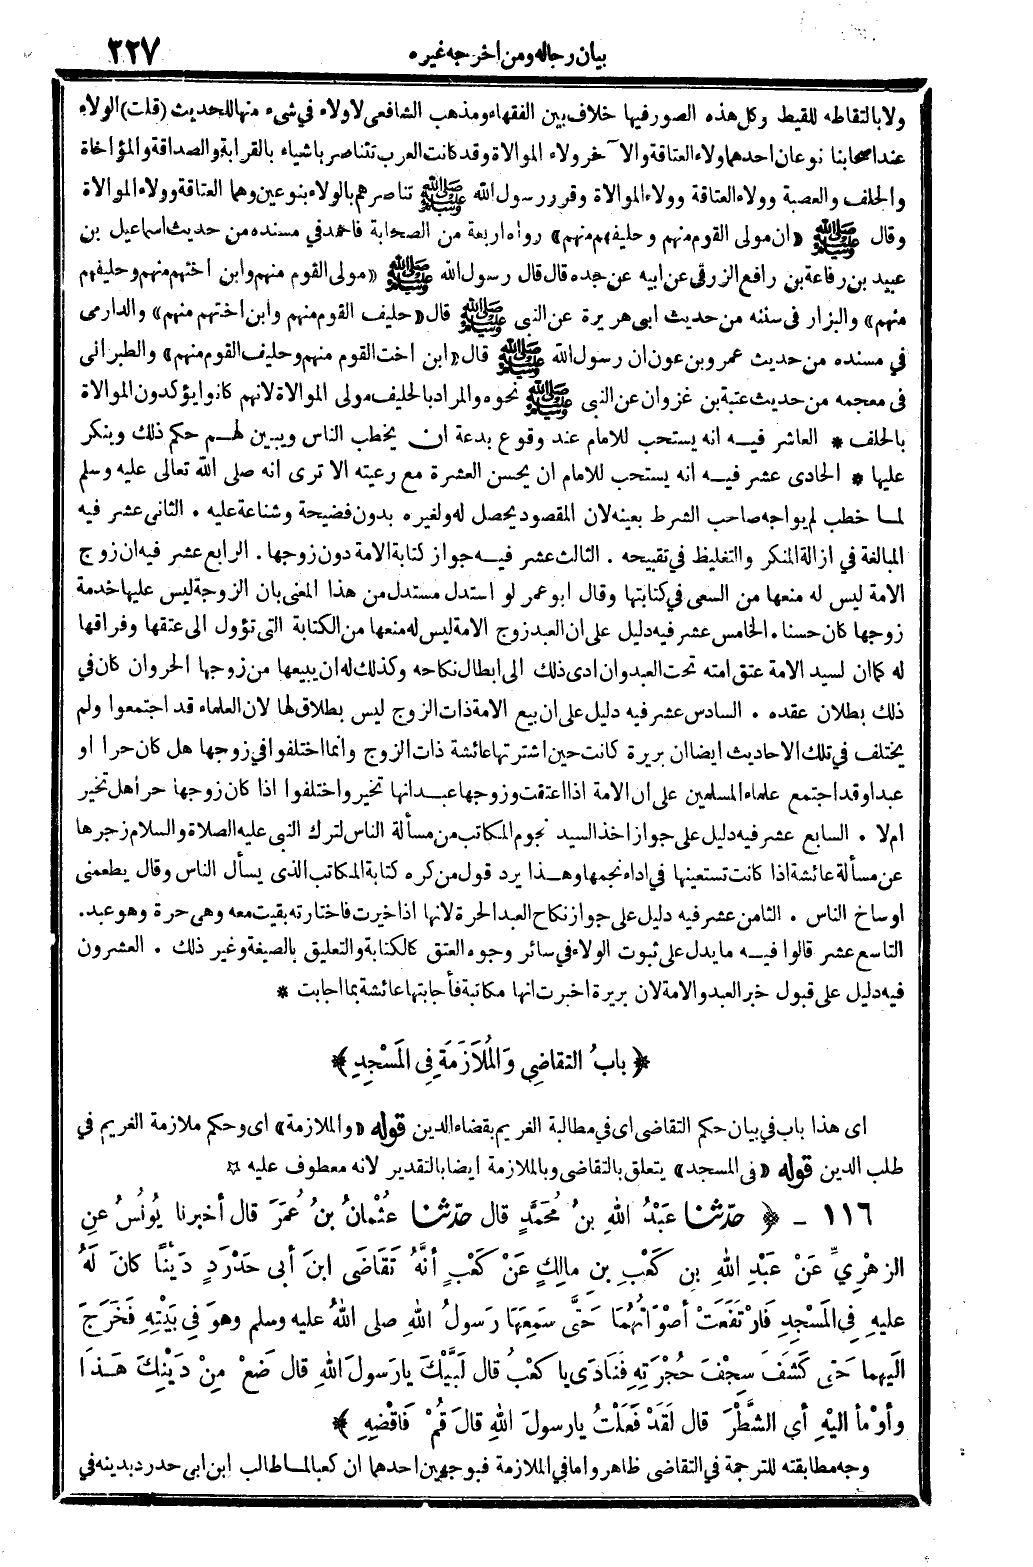 بيان رجاله ومن اخرجه غيره ٢٢٧
ولا بالتقاطه للقيط وكل هذه الصور فيها خلاف بين الفقهاء ومذهب الشافعى لا ولاء فى شىء منها للحديث (قلت) الولاء
عند اصحابنا نوعان احدهما ولاء العتاقة والآخر ولاء الموالاة وقد كانت العرب تتناصر باشياء بالقرابة والصداقة والمؤاخاة
والحلف والعصبة وولاء العتاقة وولاء الموالاة وقرر رسول الله ﷺ تناصرهم بالولاء بنوعين وهما العتاقة وولاء الموالاة
وقال ﷺ «ان مولى القوم منهم وحليفهم منهم» رواه اربعة من الصحابة فاحمد في مسنده من حديث اسماعيل بن
عبيد بن رفاعة بن رافع الزرقى عن ابيه عن جده قال قال رسول الله ﷺ «مولى القوم منهم وابن اختهم منهم وحليفهم
منهم» والبزار فى سننه من حديث ابى هريرة عن النبى ﷺ قال «حليف القوم منهم وابن اختهم منهم» والدارمى
في مسنده من حديث عمرو بن عون ان رسول الله ﷺ قال «ابن اخت القوم منهم وحليف القوم منهم» والطبرانى
فى معجمه من حديث عتبة بن غزوان عن النبى ﷺ نحوه والمراد بالحليف مولى الموالاة لانهم كانوا يؤكدون الموالاة
بالحلف * العاشر فيه انه يستحب للامام عند وقوع بدعة ان يخطب الناس ويبين لهم حكم ذلك وينكر
عليها * الحادى عشر فيه انه يستحب للامام ان يحسن العشرة مع رعيته الا ترى انه صلى الله تعالى عليه وسلم
لما خطب لم يواجه صاحب الشرط بعينه لان المقصود يحصل له ولغيره بدون فضيحة وشناعة عليه . الثانى عشر فيه
المبالغة في ازالة المنكر والتغليظ في تقبيحه . الثالث عشر فيه جواز كتابة الامة دون زوجها . الرابع عشر فيه ان زوج
الامة ليس له منعها من السعى في كتابتها وقال ابو عمر لو استدل مستدل من هذا المعنى بان الزوجة ليس عليها خدمة
زوجها كان حسنا . الخامس عشر فيه دليل على ان العبد زوج الامة ليس له منعها من الكتابة التى تؤول الى عتقها وفراقها
له كما ان لسيد الامة عتق امته تحت العبد وان ادى ذلك الى ابطال نكاحه وكذلك له ان يبيعها من زوجها الحر وان كان في
ذلك بطلان عقده . السادس عشر فيه دليل على ان بيع الامة ذات الزوج ليس بطلاق لها لان العلماء قد اجتمعوا ولم
يختلف في تلك الاحاديث ايضا ان بريرة كانت حين اشترتها عائشة ذات الزوج وانما اختلفوا في زوجها هل كان حرا او
عبدا وقد اجتمع علماء المسلمين على ان الامة اذا اعتقت وزوجها عبد انها تخير واختلفوا اذا كان زوجها حرا هل تخير
ام لا . السابع عشر فيه دليل على جواز اخذ السيد نجوم المكاتب من مسألة الناس لترك النبى عليه الصلاة والسلام زجرها
عن مسألة عائشة اذا كانت تستعينها في اداء نجمها وهذا يرد قول من كره كتابة المكاتب الذى يسأل الناس وقال يطعمنى
اوساخ الناس . الثامن عشر فيه دليل على جواز نكاح العبد الحرة لانها اذا خيرت فاختارته بقيت معه وهى حرة وهو عبد.
التاسع عشر قالوا فيه ما يدل على ثبوت الولاء في سائر وجوه العتق كالكتابة والتعليق بالصيغة وغير ذلك . العشرون
فيه دليل على قبول خبر العبد والامة لان بريرة اخبرت انها مكاتبة فأجابتها عائشة بما اجابت *
﴿ بابُ التقاضِى وَالمُلَازَمَةِ فِى المَسْجِدِ ﴾
اى هذا باب في بيان حكم التقاضى اى في مطالبة الغريم بقضاء الدين قوله «والملازمة» اى وحكم ملازمة الغريم في
طلب الدين قوله «فى المسجد» يتعلق بالتقاضى وبالملازمة ايضا بالتقدير لانه معطوف عليه ☆
١١٦ - ﴿ حدّثنا عَبْدُ اللهِ بنُ مُحَمَّدٍ قال حدّثنا عثْمانُ بنُ عُمَرَ قال أخبرنا يُونُسُ عنِ
الزهْرِيِّ عَنْ عَبْدِ اللهِ بنِ كَعْبِ بنِ مالِكٍ عَنْ كَعْبٍ أنَّهُ تَقَاضَى ابنَ أبى حَدْرَدٍ دَيْنًا كانَ لَهُ
عليهِ فِي المَسْجِدِ فَارْتَفَعَتْ أصْوَاتُهُمَا حَتَّى سَمِعَهَا رَسولُ اللهِ صلى اللهُ عليه وسلم وهوَ فِي بَيْتِهِ فَخَرَجَ
الَيهِما حَتى كَشَفَ سِجْفَ حُجْرَتِهِ فَنَادَى يا كَعْبُ قال لَبَّيْكَ يارسولَ اللهِ قال ضَعْ مِنْ دَيْنِكَ هَذَا
وأوْمأ اليْهِ أىِ الشَّطْرَ قال لَقَدْ فَعَلْتُ يارسولَ اللهِ قالَ قُمْ فَاقْضِهِ ﴾
وجه مطابقته للترجمة في التقاضى ظاهر واما في الملازمة فبوجهين احدهما ان كعبا لما طالب ابن ابى حدرد بدينه في